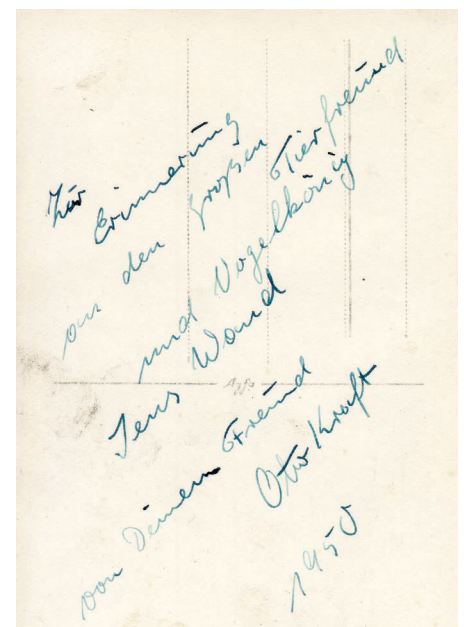 Zur Erinnerung
an den großen Tierfreund
und Vogelkönig
Jens Wand
von Deinem Freund
Otto Kraft
1950
Agfa